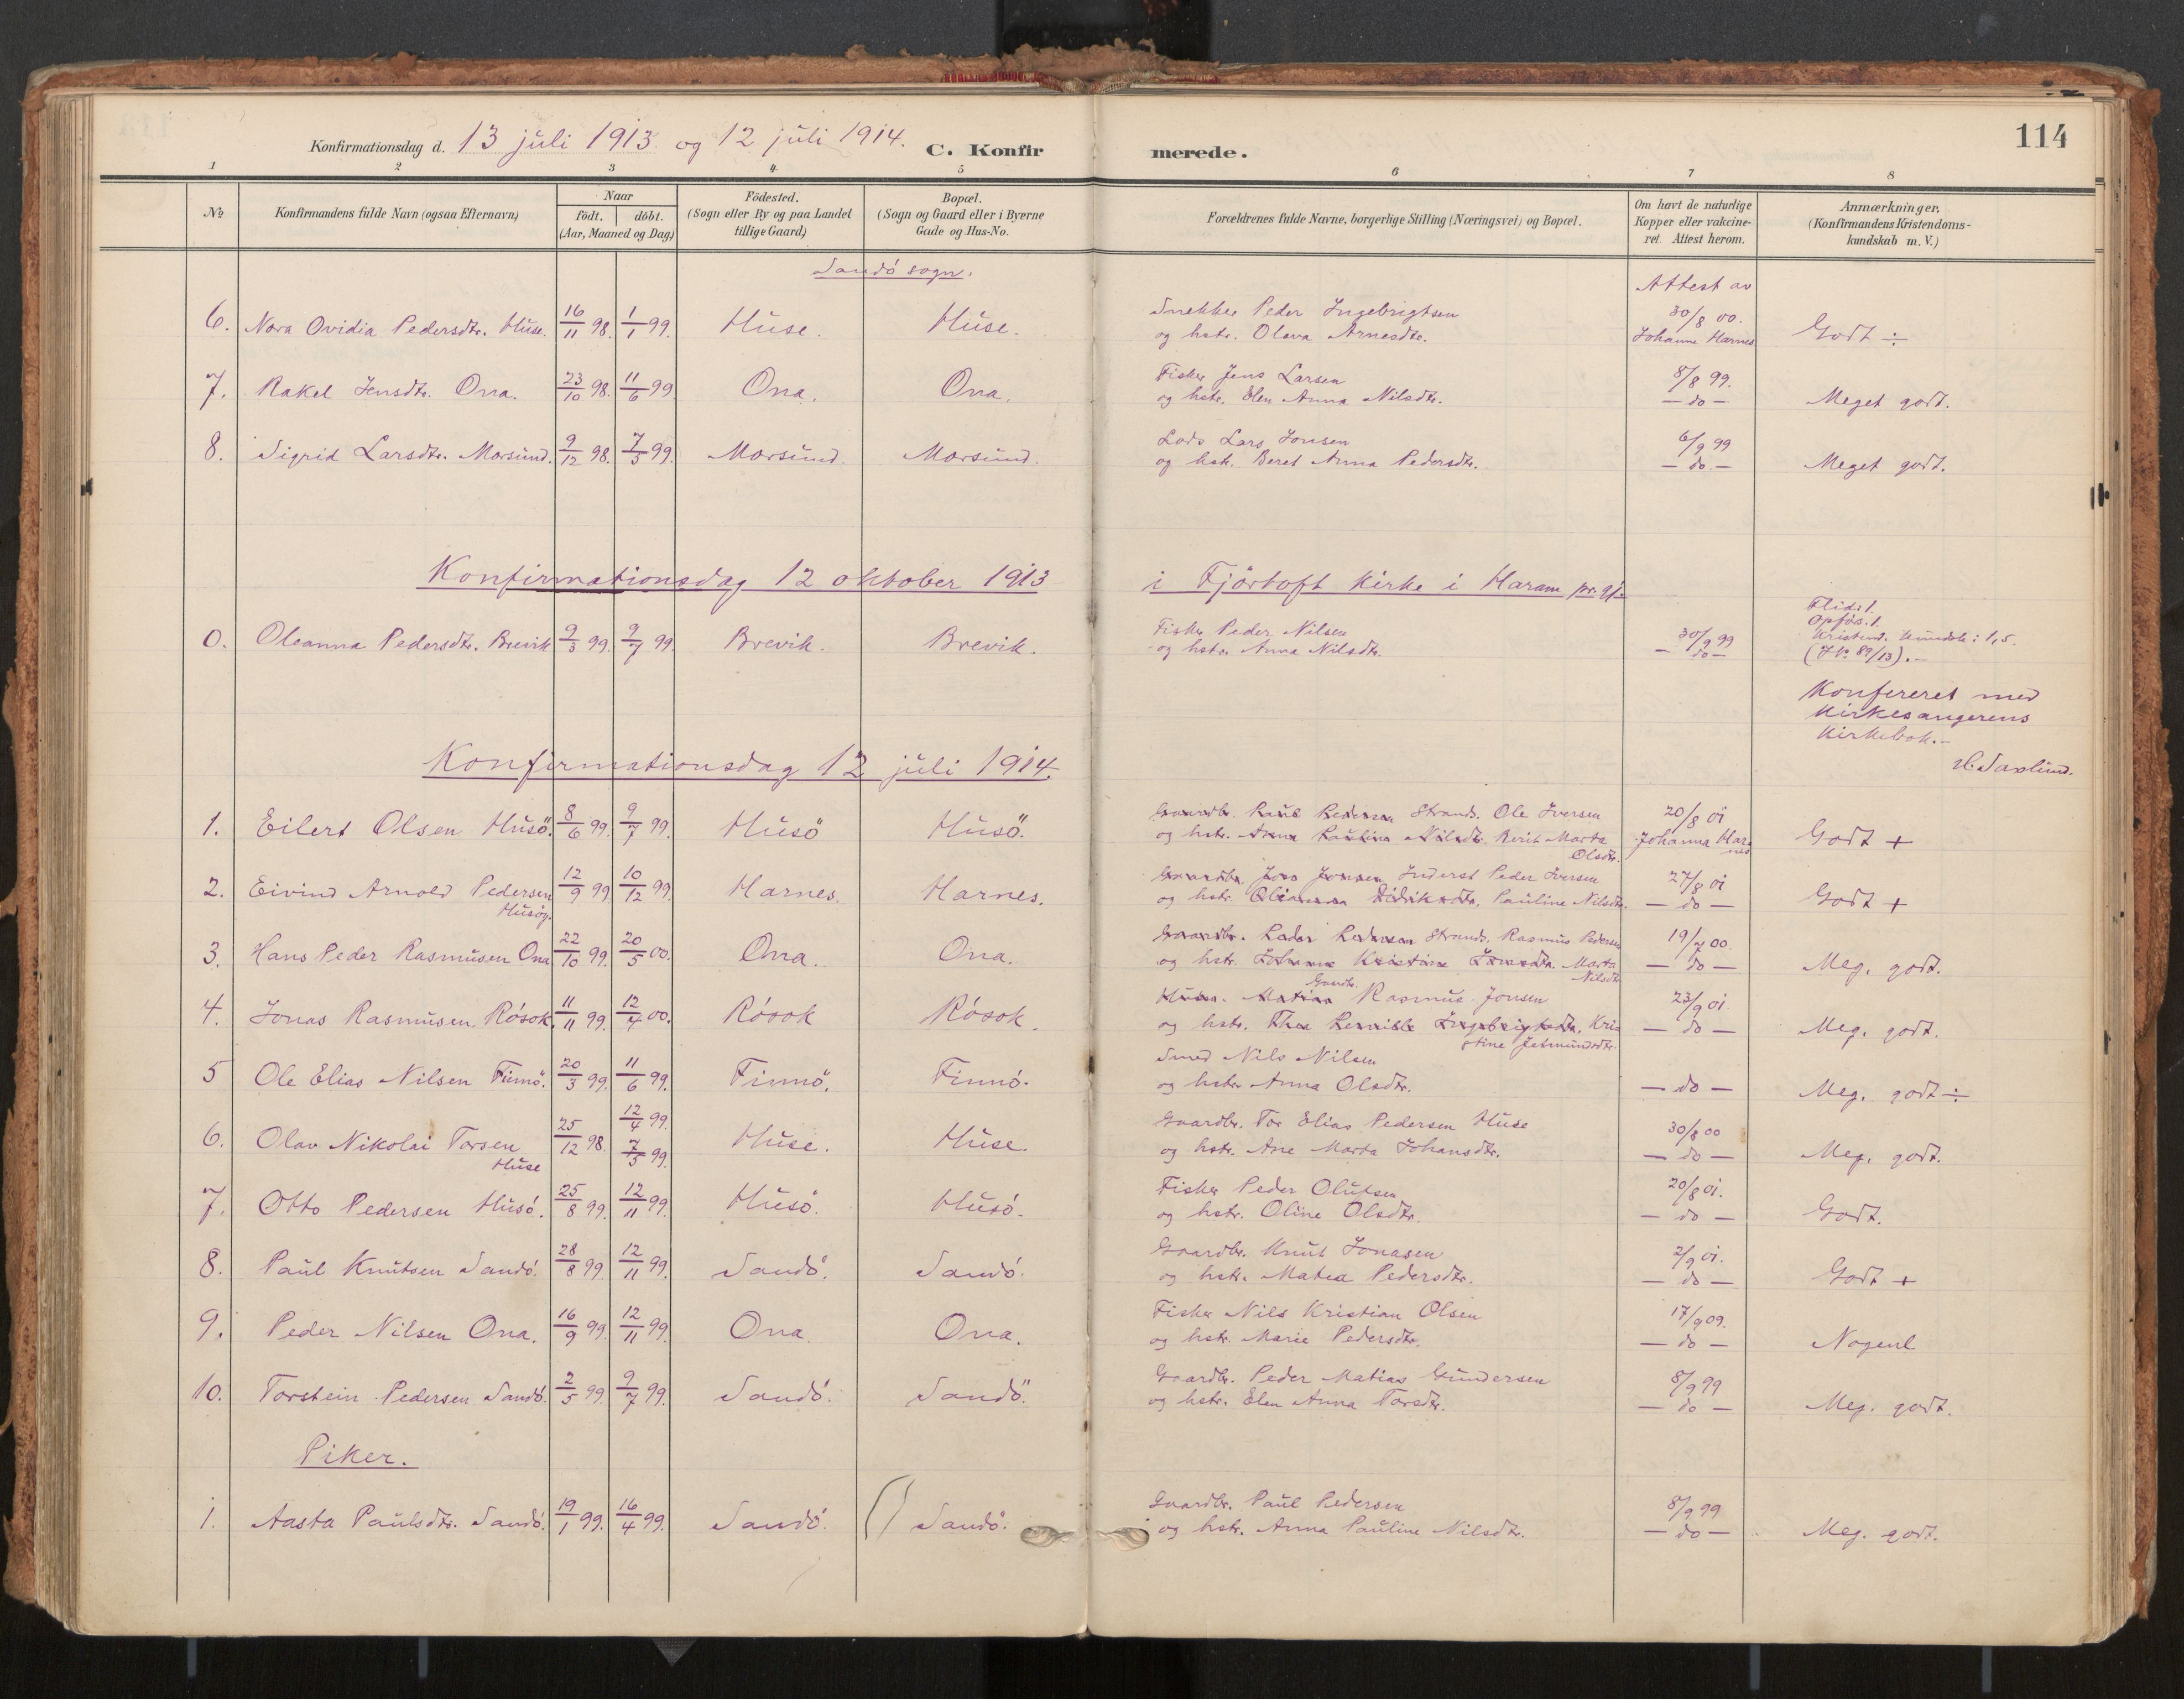 114
Konfirmationsdag d. 13 juli 1913 og 12 juli 1914. C. Konfirmerede.
1 2 3 4 5 6 7 8
No Konfirmandens fulde Navn (ogsaa Efternavn) Naar født. døbt. (Aar, Maaned og Dag) Födested. (Sogn eller By og paa Landet tillige Gaard) Bopæl. (Sogn og Gaard eller i Byerne Gade og Hus-No. Forældrenes fulde Navne, borgerlige Stilling (Næringsvei) og Bopæl. Om havt de naturlige Kopper eller vakcineret. Attest herom. Anmærkninger, (Konfirmandens Kristendomskundskab m. V.)
Sandö sogn.
Attest av
6. Nora Ovidia Pedersdtr. Huse. 16/11 98. 1/1 99. Huse. Huse. Snekker Peder Ingebrigtsen 30/8 00.
og hstr. Olava Arnesdtr. Johanne Harnes Godt ÷
7. Rakel Jensdtr. Ona. 23/10 98. 11/6 99 Ona. Ona. Fisker Jens Larsen 8/8 99.
og hstr. Elen Anna Nilsdtr. — do — Meget godt.
8. Sigrid Larsdtr. Morsund. 9/12 98. 7/5 99. Morsund. Morsund. Lods Lars Jonsen 6/9 99
og hstr. Beret Anna Pedersdtr. — do — Meget godt.
Konfirmationsdag 12 oktober 1913 i Fjörtoft kirke i Haram
0. Oleanna Pedersdtr. Brevik 9/3 99. 9/7 99. Brevik. Brevik. Fisker Peder Nilsen
og hstr. Anna Nilsdtr. 30/9 99 — do —
Flid: 1.
Opförs. 1.
Kristend. kundsk: 1,5.
(J No 89/13). —
Konfereret med
kirkesangerens
kirkebok. —
H. Saxlund.
Konfirmationsdag 12 juli 1914.
1. Eilert Olsen Husö. 8/6 99. 9/7 99. Husö Husö. Gaardbr. Paul Pedersen Strands. Ole Iversen 20/8 01
og hstr. Anna Paulina Nilsdtr. Berit Marta Olsdtr. Johanna Harnes Godt +
2. Eivind Arnold Pedersen Husöy. 12/9 99 10/12 99. Harnes. Harnes. Gaardbr. Jens Jonsen Inderst Peder Iversen 27/8 01
og hstr. Olianna Didriksdtr. Pauline Nilsdtr. — do — Godt +
3. Hans Peder Rasmusen Ona 22/10 99. 20/5 00. Ona. Ona. Gaardbr. Peder Pedersen Strands. Rasmus Pedersen 19/9 00.
og hstr. Johanne Kristine Jonsdtr. Marta Nilsdtr. — do — Meg. godt.
4. Jonas Rasmusen Rösok. 11/11 99. 12/4 00. Rösok Rösok. Husm. Matias Gaardbr. Rasmus Jonsen 23/9 01.
og hstr. Thea Pernille Ingebrigtsdtr. Kristine Jetmundsdtr. — do — Meg. godt.
5 Ole Elias Nilsen Finnö. 20/3 99. 11/6 99. Finnö. Finnö. Smed Nils Nilsen
og hstr. Anna Olsdtr. — do — Meg. godt ÷
6. Olav Nikolai Torsen Huse 25/12 98. 12/4 99. 7/5 99. Huse. Huse. Gaardbr. Tor Elias Pedersen Huse 30/8 00
og hstr. Ane Marta Johansdtr. — do — Meg. godt.
7. Otto Pedersen Husö. 25/8 99. 12/11 99. Husö. Husö. Fisker Peder Olufsen 20/8 01.
og hstr. Oline Olsdtr. — do — Godt.
8. Paul Knutsen Sandö. 28/8 99. 12/11 99. Sandö. Sandö. Gaardbr. Knut Jonasen 2/9 01.
og hstr. Matea Pedersdtr. — do — Godt +
9. Peder Nilsen Ona. 16/9 99. 12/11 99. Ona. Ona. Fisker Nils Kristian Olsen 17/9 09.
og hstr. Marie Pedersdtr. — do — Nogenl
10. Torstein Pedersen Sandö. 2/5 99. 9/7 99. Sandö. Sandö. Gaardbr. Peder Matias Gundersen 8/9 99
og hstr. Elen Anna Torsdtr. — do — Meg. godt.
Piker.
1. Aasta Paulsdtr. Sandö. 19/1 99. 16/4 99. Sandö. Sandö. Gaardbr. Paul Pedersen 8/9 99
og hstr. Anna Pauline Nilsdtr. — do — Meg. godt.